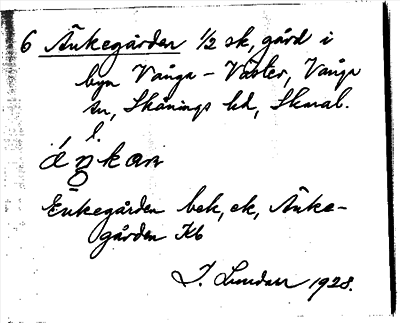 6 Änkegården 1/2 sk, gård i
byn Vånga - Väster, Vånga
sn, Skånings hd, Skarab.
Enkegården bek, ek, Änke-
gården Kb
J. Lundahl 1928.